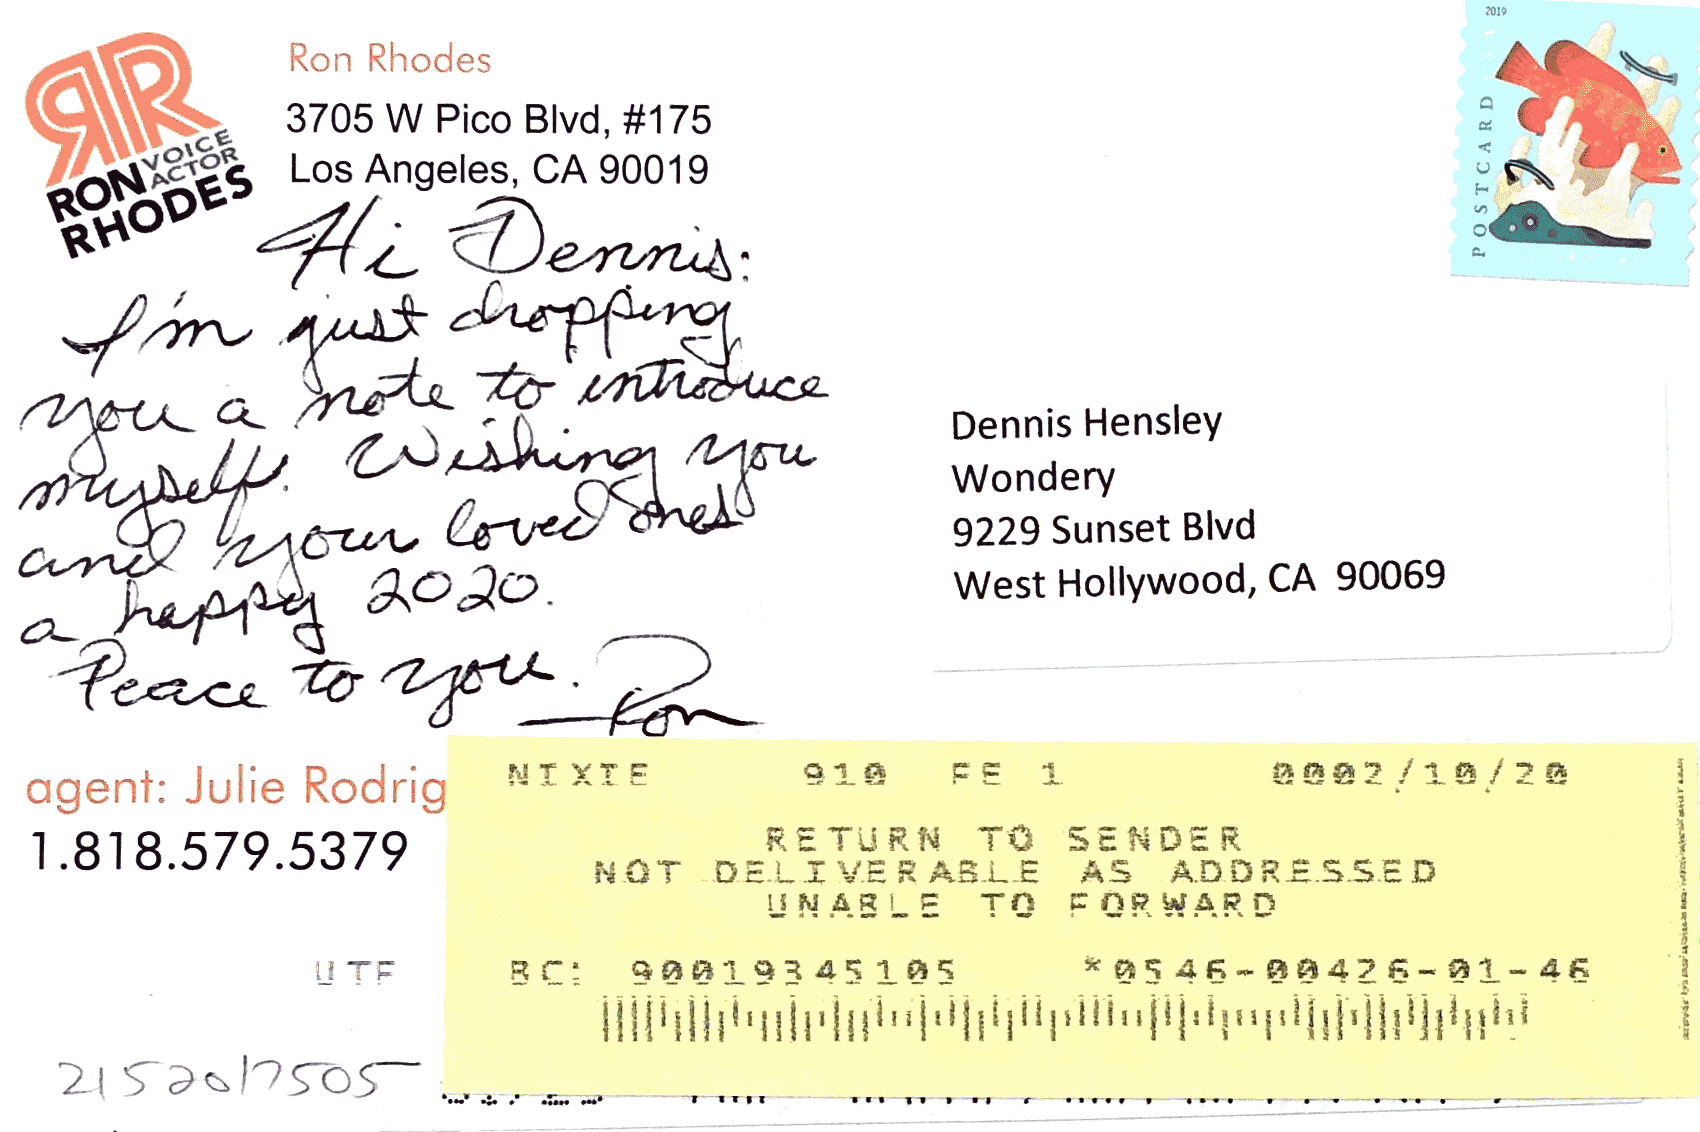 RR
VOICE
ACTOR
RON
RHODES
Ron Rhodes
3705 W Pico Blvd, #175
Los Angeles, CA 90019
2019
POSTCARD
Hi Dennis:
I'm just dropping
you a note to introduce
myself. Wishing you
and your loved ones
a happy 2020.
Peace to you.
—Ron
Dennis Hensley
Wondery
9229 Sunset Blvd
West Hollywood, CA 90069
agent: Julie Rodrig
1.818.579.5379
NIXIE 910 FE 1 0002/10/20
RETURN TO SENDER
NOT DELIVERABLE AS ADDRESSED
UNABLE TO FORWARD
UTF
BC: 90019345105 *0546-00426-01-46
21520/7505